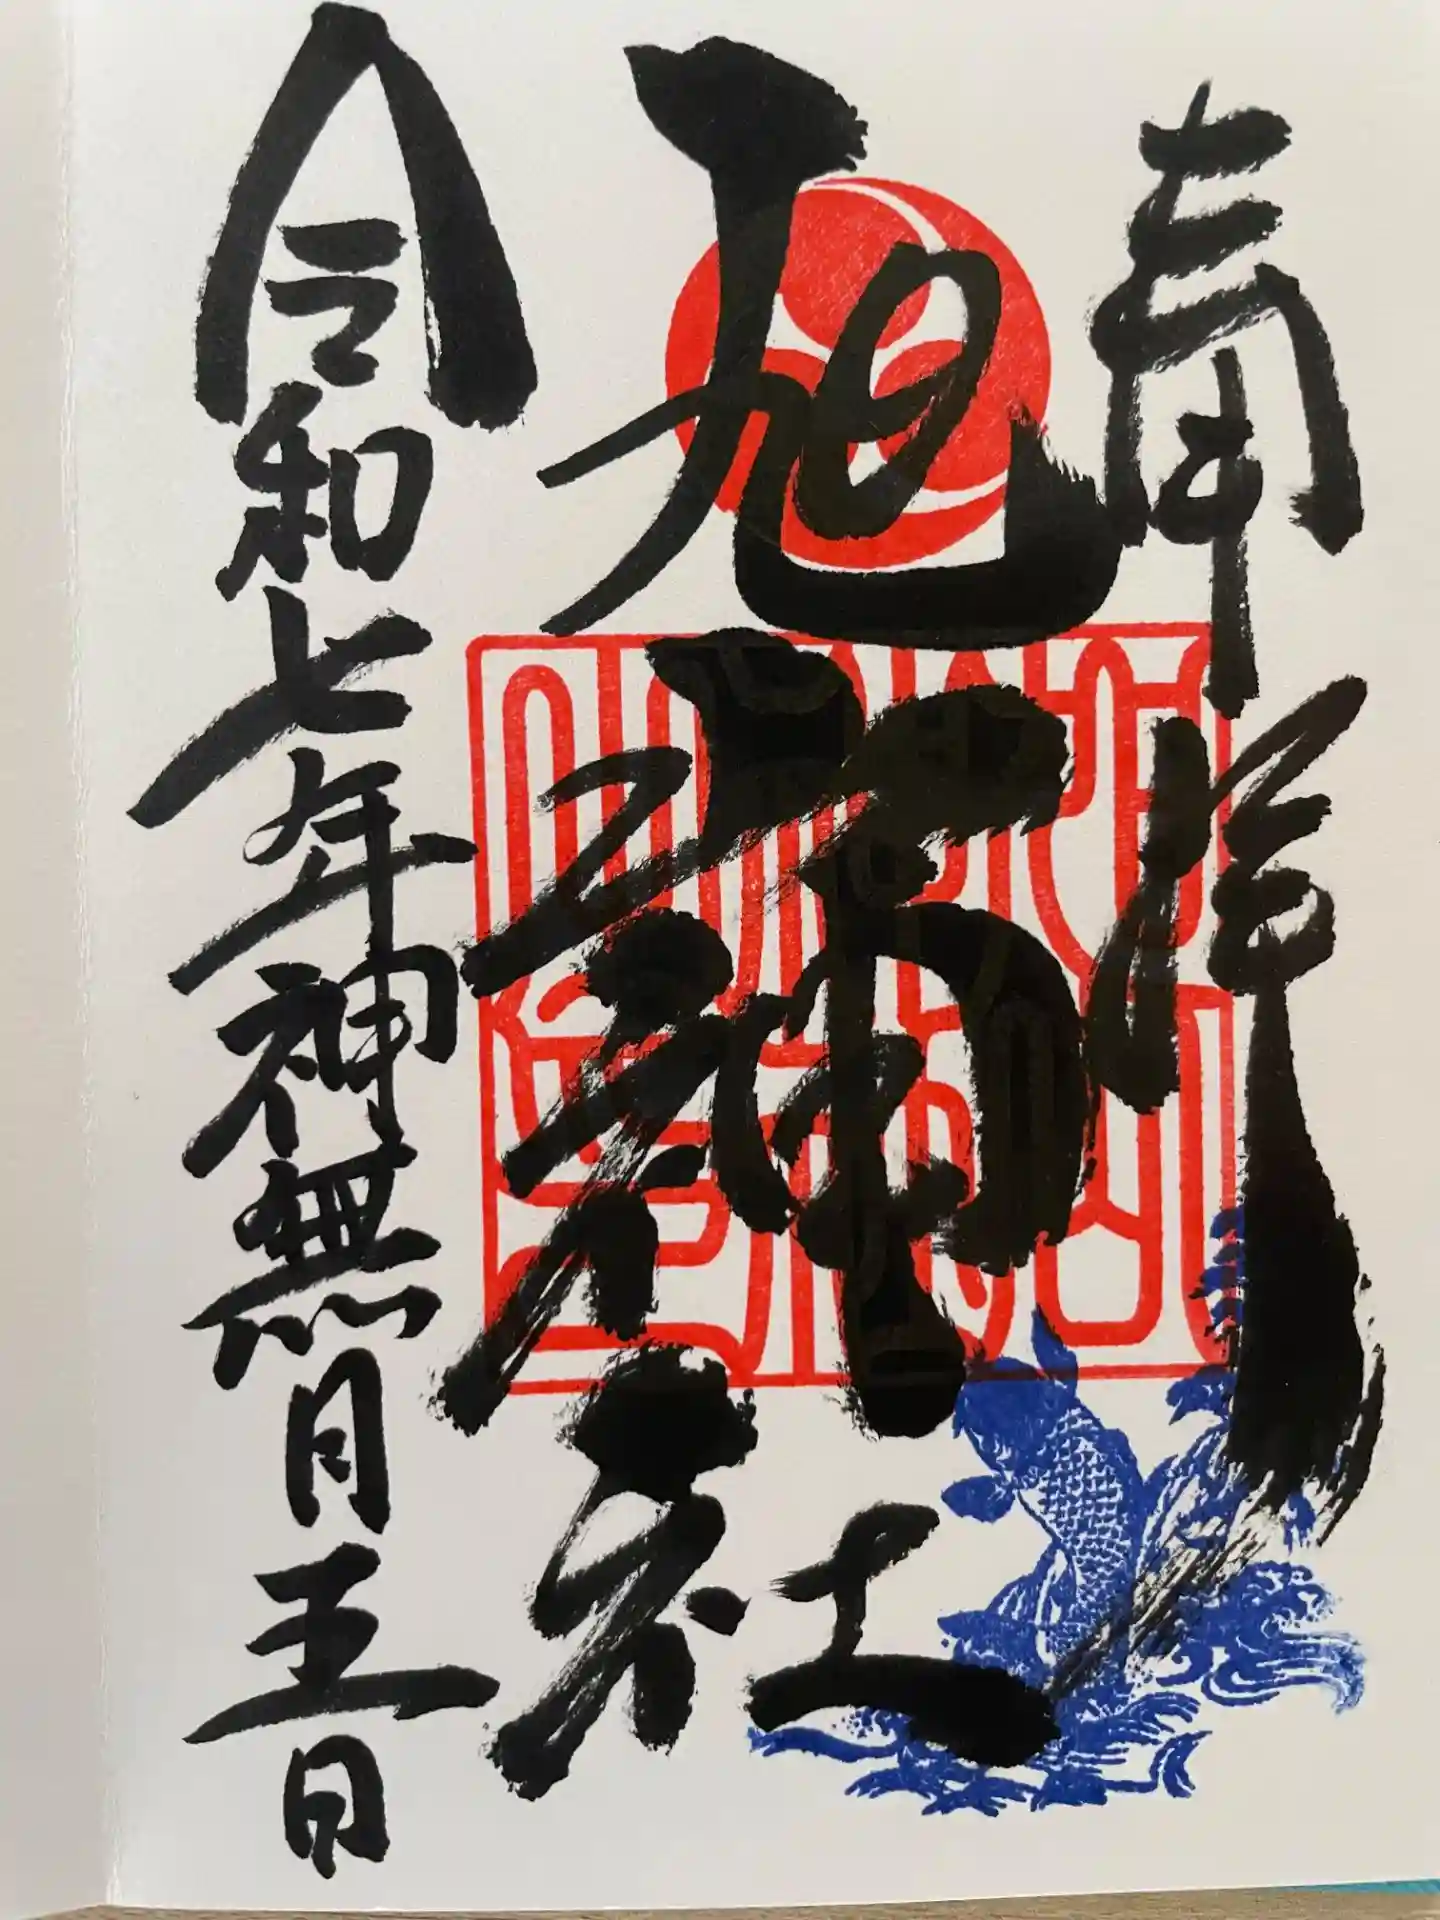 奉拝
旭神社
令和七年神無月五日